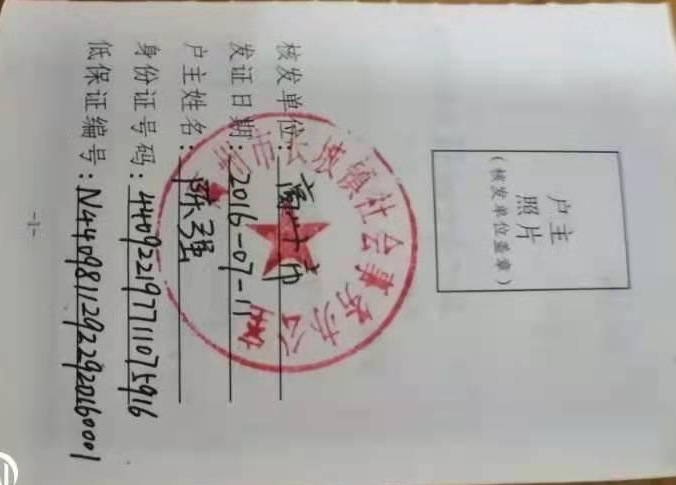 户主
照片
(核发单位盖章)
核发单位:高州市
发证日期:2016-07-11
户主姓名:陈强
身份证号码:440922197711075916
低保证编号:N44098112922920160001
市长坡镇社会事务办公室
-1-